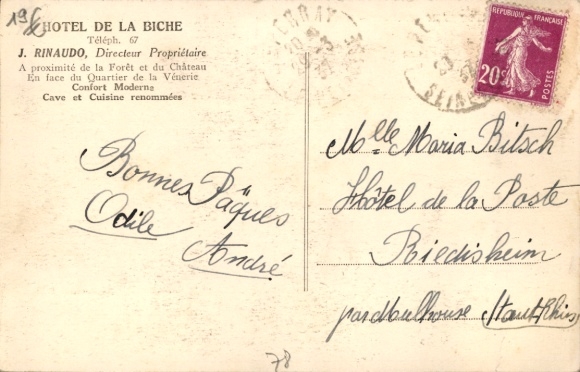 HOTEL DE LA BICHE
Téléph. 67
J. RINAUDO, Directeur Propriétaire
A proximité de la Forêt et du Château
En face du Quartier de la Vénerie
Confort Moderne
Cave et Cuisine renommées
REPUBLIQUE FRANÇAISE
20c
POSTES
SEINE
Bonnes Pâques
Odile
André
Melle Maria Bitsch
Hôtel de la Poste
Riedisheim
par Mulhouse (Haut Rhin)
78